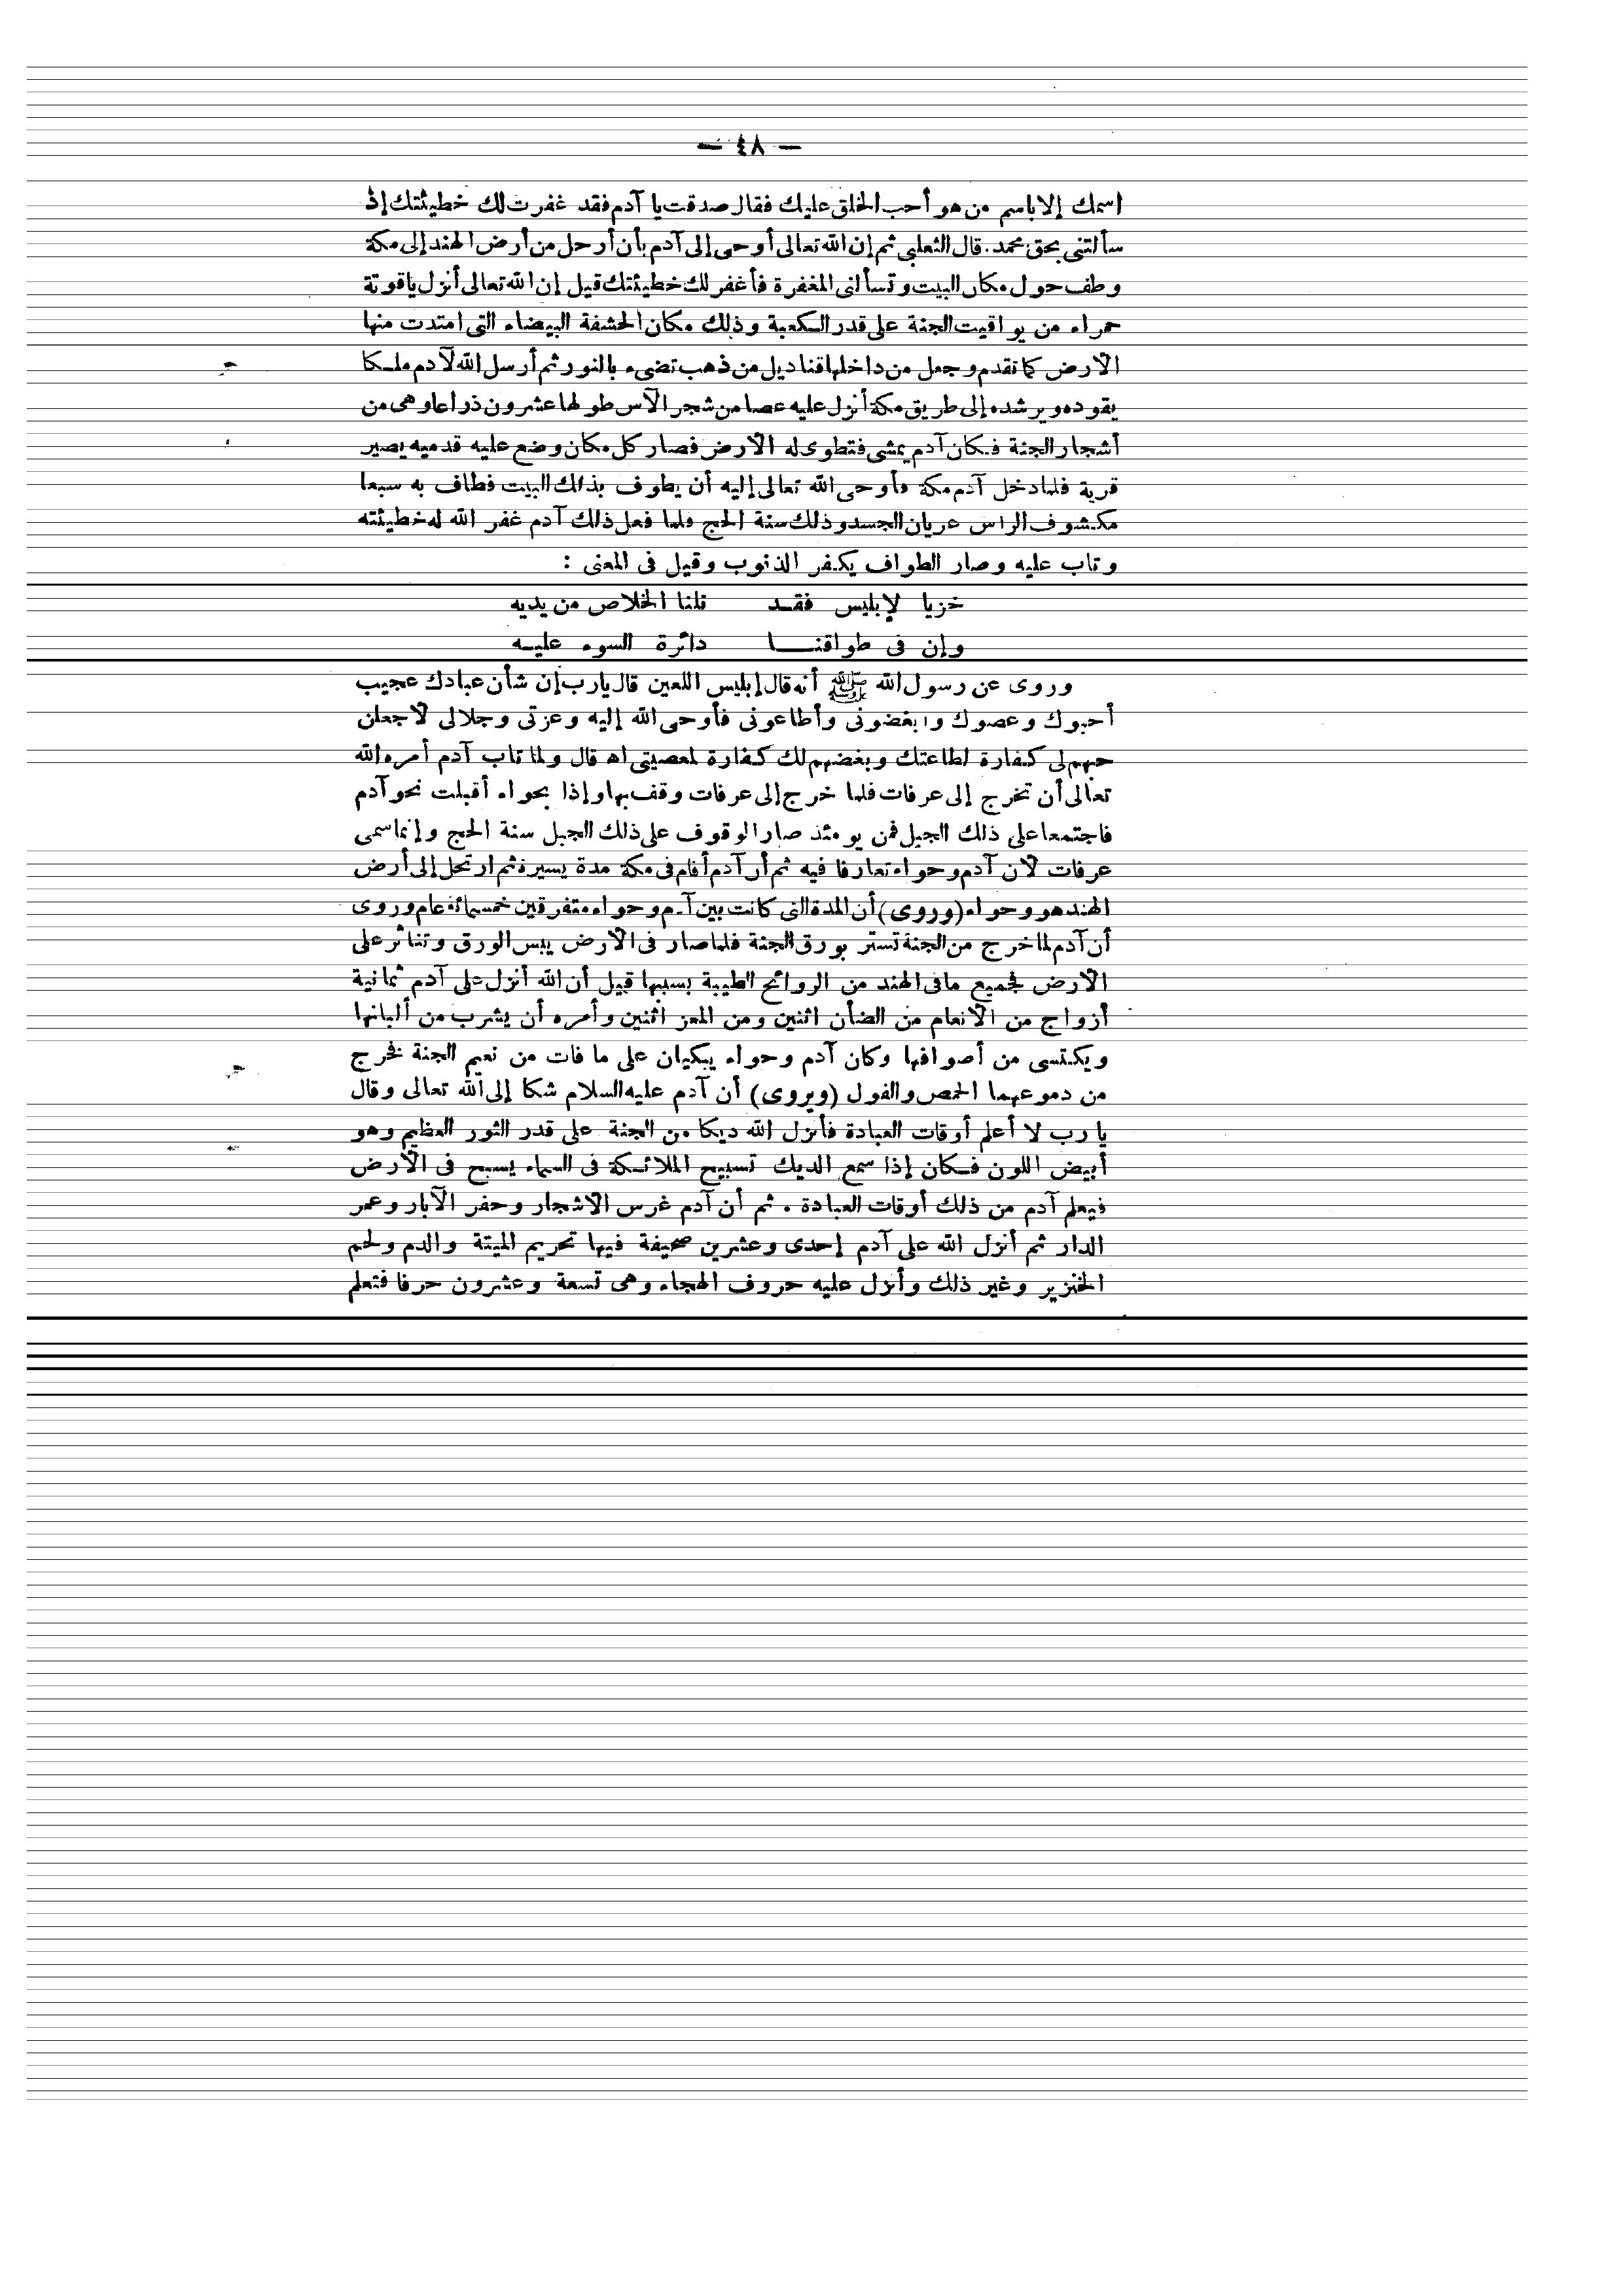 — ٤٨ —
اسمك إلا باسم من هو أحب الخلق عليك فقال صدقت يا آدم فقد غفرت لك خطيئتك إذ
سألتنى بحق محمد. قال الثعلبى ثم إن الله تعالى أوحى إلى آدم بأن أرحل من أرض الهند إلى مكة
وطف حول مكان البيت وتسألنى المغفرة فأغفر لك خطيئتك قيل إن الله تعالى أنزل ياقوتة
حمراء من يواقيت الجنة على قدر الكعبة وذلك مكان الحشفة البيضاء التى امتدت منها
الأرض كما تقدم وجعل من داخلها قناديل من ذهب تضىء بالنور ثم أرسل الله لآدم ملكا
يقوده ويرشده إلى طريق مكة أنزل عليه عصا من شجر الآس طولها عشرون ذراعا وهى من
أشجار الجنة فكان آدم يمشى فتطوى له الأرض فصار كل مكان وضع عليه قدميه يصير
قرية فلما دخل آدم مكة وأوحى الله تعالى إليه أن يطوف بذلك البيت فطاف به سبعا
مكشوف الراس عريان الجسد وذلك سنة الحج فلما فعل ذلك آدم غفر الله له خطيئته
وتاب عليه وصار الطواف يكفر الذنوب وقيل فى المعنى :
خزيا لإبليس فقد نلنا الخلاص من يديه
وإن فى طوافنا دائرة السوء عليه
وروى عن رسول الله ﷺ أنه قال إبليس اللعين قال يارب إن شأن عبادك عجيب
أحبوك وعصوك وابغضونى وأطاعونى فأوحى الله إليه وعزتى وجلالى لأجعلن
حبهم لى كفارة لطاعتك وبغضهم لك كفارة لمعصيتى اه قال ولما تاب آدم أمره الله
تعالى أن تخرج إلى عرفات فلما خرج إلى عرفات وقف بها وإذا بحواء أقبلت نحو آدم
فاجتمعا على ذلك الجبل فمن يومئذ صار الوقوف على ذلك الجبل سنة الحج وإنما سمى
عرفات لأن آدم وحواء تعارفا فيه ثم أن آدم أقام فى مكة مدة يسيرة ثم ارتحل إلى أرض
الهند هو وحواء (وروى) أن المدة التى كانت بين آدم وحواء متفرقين خمسمائة عام وروى
أن آدم لما خرج من الجنة تستر بورق الجنة فلما صار فى الأرض يبس الورق وتناثر على
الأرض فجميع ما فى الهند من الروائح الطيبة بسببها قيل أن الله أنزل على آدم ثمانية
أزواج من الأنعام من الضأن اثنين ومن المعز اثنين وأمره أن يشرب من ألبانها
ويكتسى من أصوافها وكان آدم وحواء يبكيان على ما فات من نعيم الجنة فخرج
من دموعهما الحمص والفول (ويروى) أن آدم عليه السلام شكا إلى الله تعالى وقال
يا رب لا أعلم أوقات العبادة فأنزل الله ديكا من الجنة على قدر الثور العظيم وهو
أبيض اللون فكان إذا سمع الديك تسبيح الملائكة فى السماء يسبح فى الأرض
فيعلم آدم من ذلك أوقات العبادة . ثم أن آدم غرس الأشجار وحفر الآبار وعمر
الدار ثم أنزل الله على آدم إحدى وعشرين صحيفة فيها تحريم الميتة والدم ولحم
الخنزير وغير ذلك وأنزل عليه حروف الهجاء وهى تسعة وعشرون حرفا فتعلم